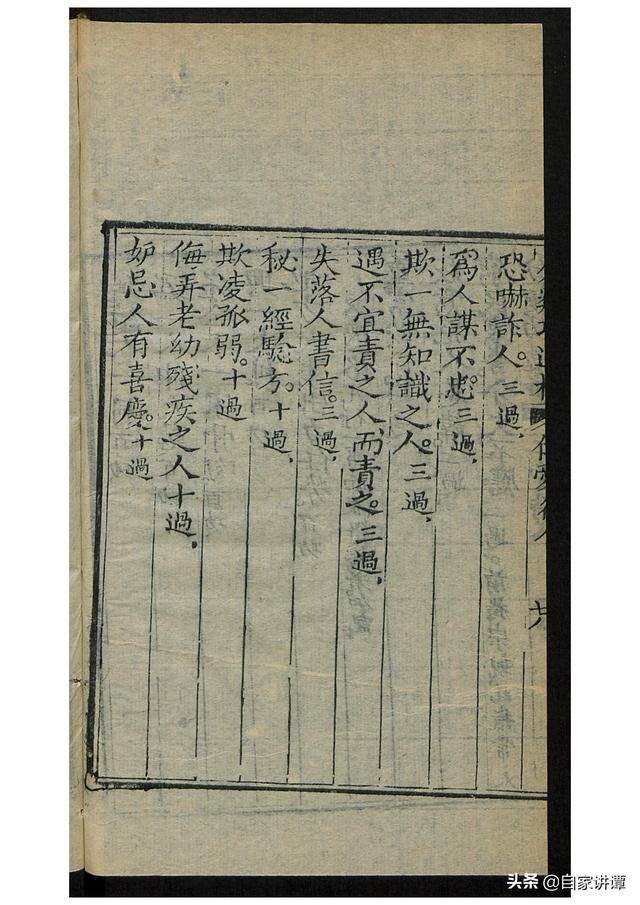 恐嚇詐人。三過、
爲人謀不忠。三過、
欺一無知識之人。三過、
遇不宜責之人、而責之。三過、
失落人書信。三過、
秘一經驗方。十過、
欺凌孤弱。十過
侮弄老幼殘疾之人十過、
妒忌人有喜慶。十過
头条 @自家讲谭